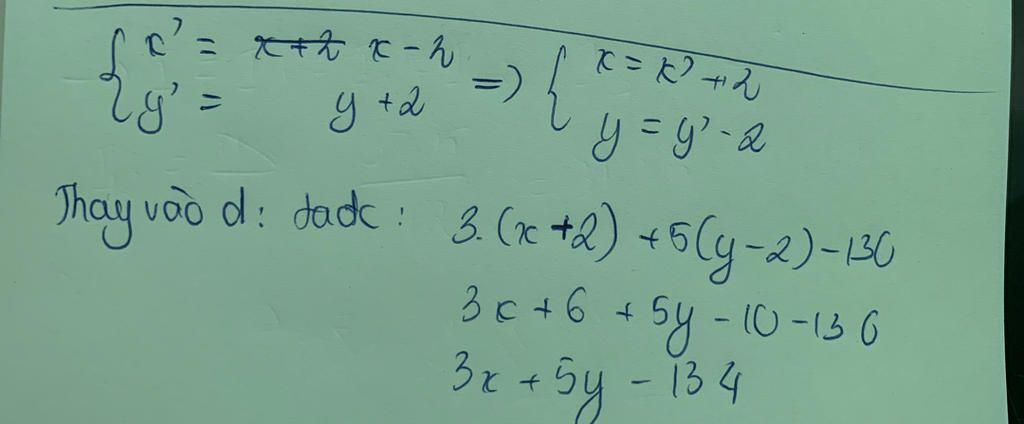 { x' = x - 2 => { x = x' + 2
y' = y + 2 y = y' - 2
Thay vào d: tađc: 3.(x+2) + 5(y-2) - 130
3x + 6 + 5y - 10 - 130
3x + 5y - 134